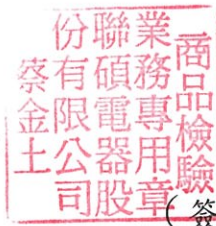 商品檢驗
業務專用章
聯碩電器股
份有限公司
蔡金土
(簽